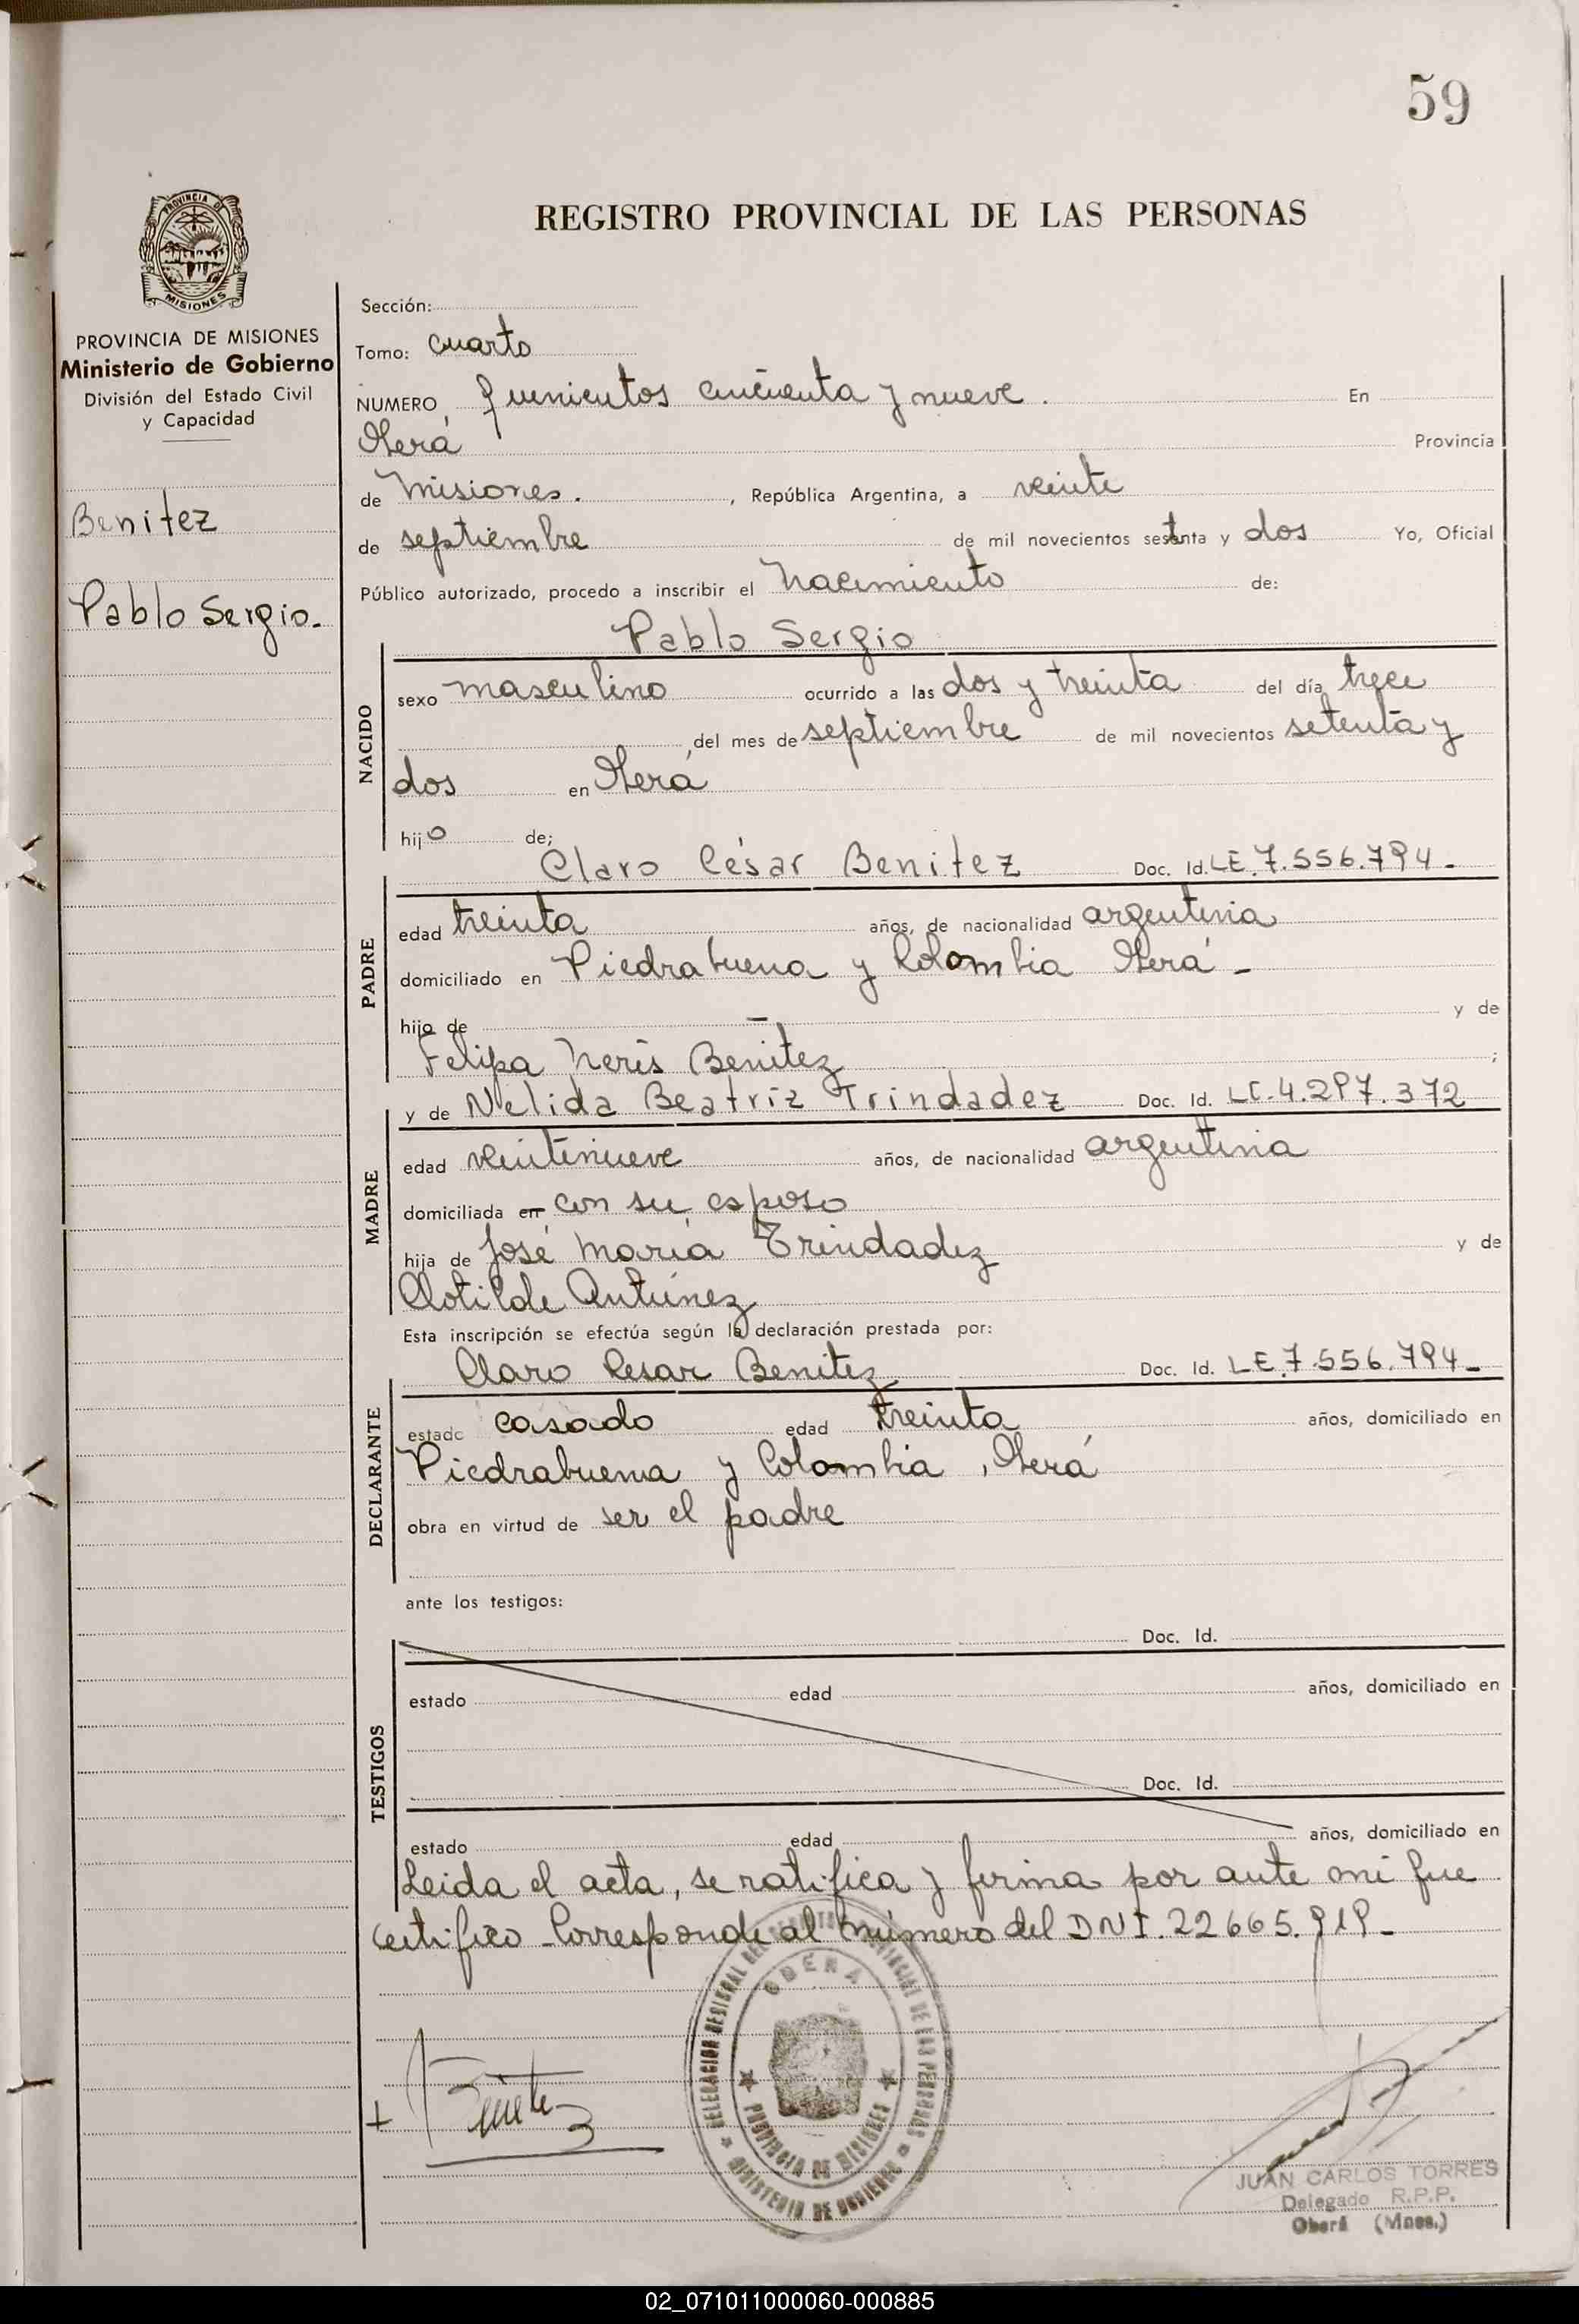 59
PROVINCIA DE
MISIONES
REGISTRO PROVINCIAL DE LAS PERSONAS
PROVINCIA DE MISIONES
Ministerio de Gobierno
División del Estado Civil
y Capacidad
Benitez
Pablo Sergio.
Sección:
Tomo: cuarto
NUMERO, quinientos cincuenta y nueve. En
Oberá Provincia
de Misiones. , República Argentina, a veinte
de septiembre de mil novecientos setenta y dos Yo, Oficial
Público autorizado, procedo a inscribir el nacimiento de:
Pablo Sergio
NACIDO
sexo masculino ocurrido a las dos y treinta del día trece
,del mes de septiembre de mil novecientos setenta y
dos en Oberá
hijo de;
Claro César Benitez Doc. Id. LE.7.556.794-
PADRE
edad treinta años, de nacionalidad argentina
domiciliado en Piedrabuena y Colombia Oberá-
hijo de — y de
Felipa Neris Benitez ;
y de Nélida Beatriz Trindadez Doc. Id. LC.4.297.372
MADRE
edad veintinueve años, de nacionalidad argentina
domiciliada en con su esposo
hija de José María Trindadez y de
Clotilde Antúnez
Esta inscripción se efectúa según la declaración prestada por:
Claro Cesar Benitez Doc. Id. LE.7.556.794-
DECLARANTE
estado casado edad treinta años, domiciliado en
Piedrabuena y Colombia, Oberá
obra en virtud de ser el padre
ante los testigos:
Doc. Id.
TESTIGOS
estado edad años, domiciliado en
Doc. Id.
estado edad años, domiciliado en
Leida el acta, se ratifica y firma por ante mi que
certifico - Corresponde al número del DNI. 22665.919-
DELEGACION REGIONAL DEL REGISTRO PROVINCIAL DE LAS PERSONAS
OBERA
PROVINCIA DE MISIONES
MINISTERIO DE GOBIERNO
Benitez
JUAN CARLOS TORRES
Delegado R.P.P.
Oberá (Mnes.)
02_071011000060-000885